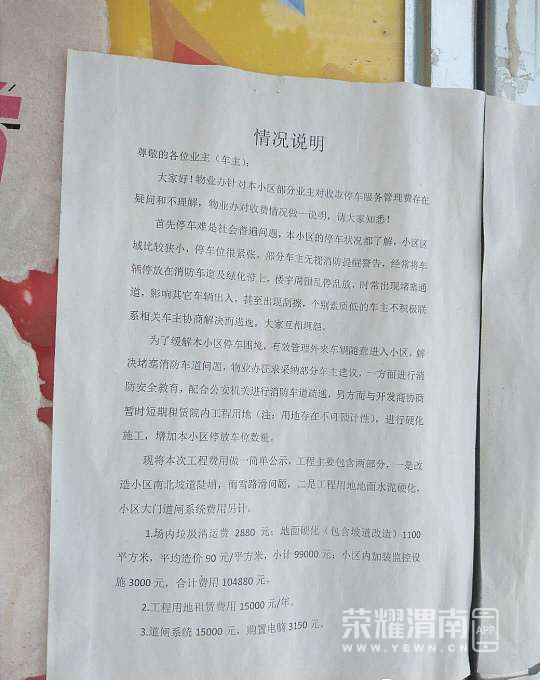 情况说明
尊敬的各位业主（车主）：
大家好！物业办针对本小区部分业主对收取停车服务管理费存在
疑问和不理解，物业办对收费情况做一说明，请大家知悉！
首先停车难是社会普遍问题，本小区的停车状况都了解，小区区
域比较狭小，停车位很紧张，部分车主无视消防提醒警告，经常将车
辆停放在消防车道及绿化带上，楼宇周围乱停乱放，时常出现堵塞通
道，影响其它车辆出入，甚至出现刮擦，个别素质低的车主不积极联
系相关车主协商解决而逃逸，大家互相埋怨。
为了缓解本小区停车困境，有效管理外来车辆随意进入小区，解
决堵塞消防车道问题，物业办征求采纳部分车主建议，一方面进行消
防安全教育，配合公安机关进行消防车道疏通，另方面与开发商协商
暂时短期租赁院内工程用地（注：用地存在不可预计性），进行硬化
施工，增加本小区停放车位数量。
现将本次工程费用做一简单公示，工程主要包含两部分，一是改
造小区南北坡道陡峭，雨雪路滑问题，二是工程用地地面水泥硬化，
小区大门道闸系统费用另计。
1.场内垃圾清运费 2880 元；地面硬化（包含坡道改造）1100
平方米，平均造价 90 元/平方米，小计 99000 元；小区内加装监控设
施 3000 元，合计费用 104880 元。
2.工程用地租赁费用 15000 元/年。
3.道闸系统 15000 元，购置电脑 3150 元。
荣耀渭南 APP
WWW.YEWN.CN